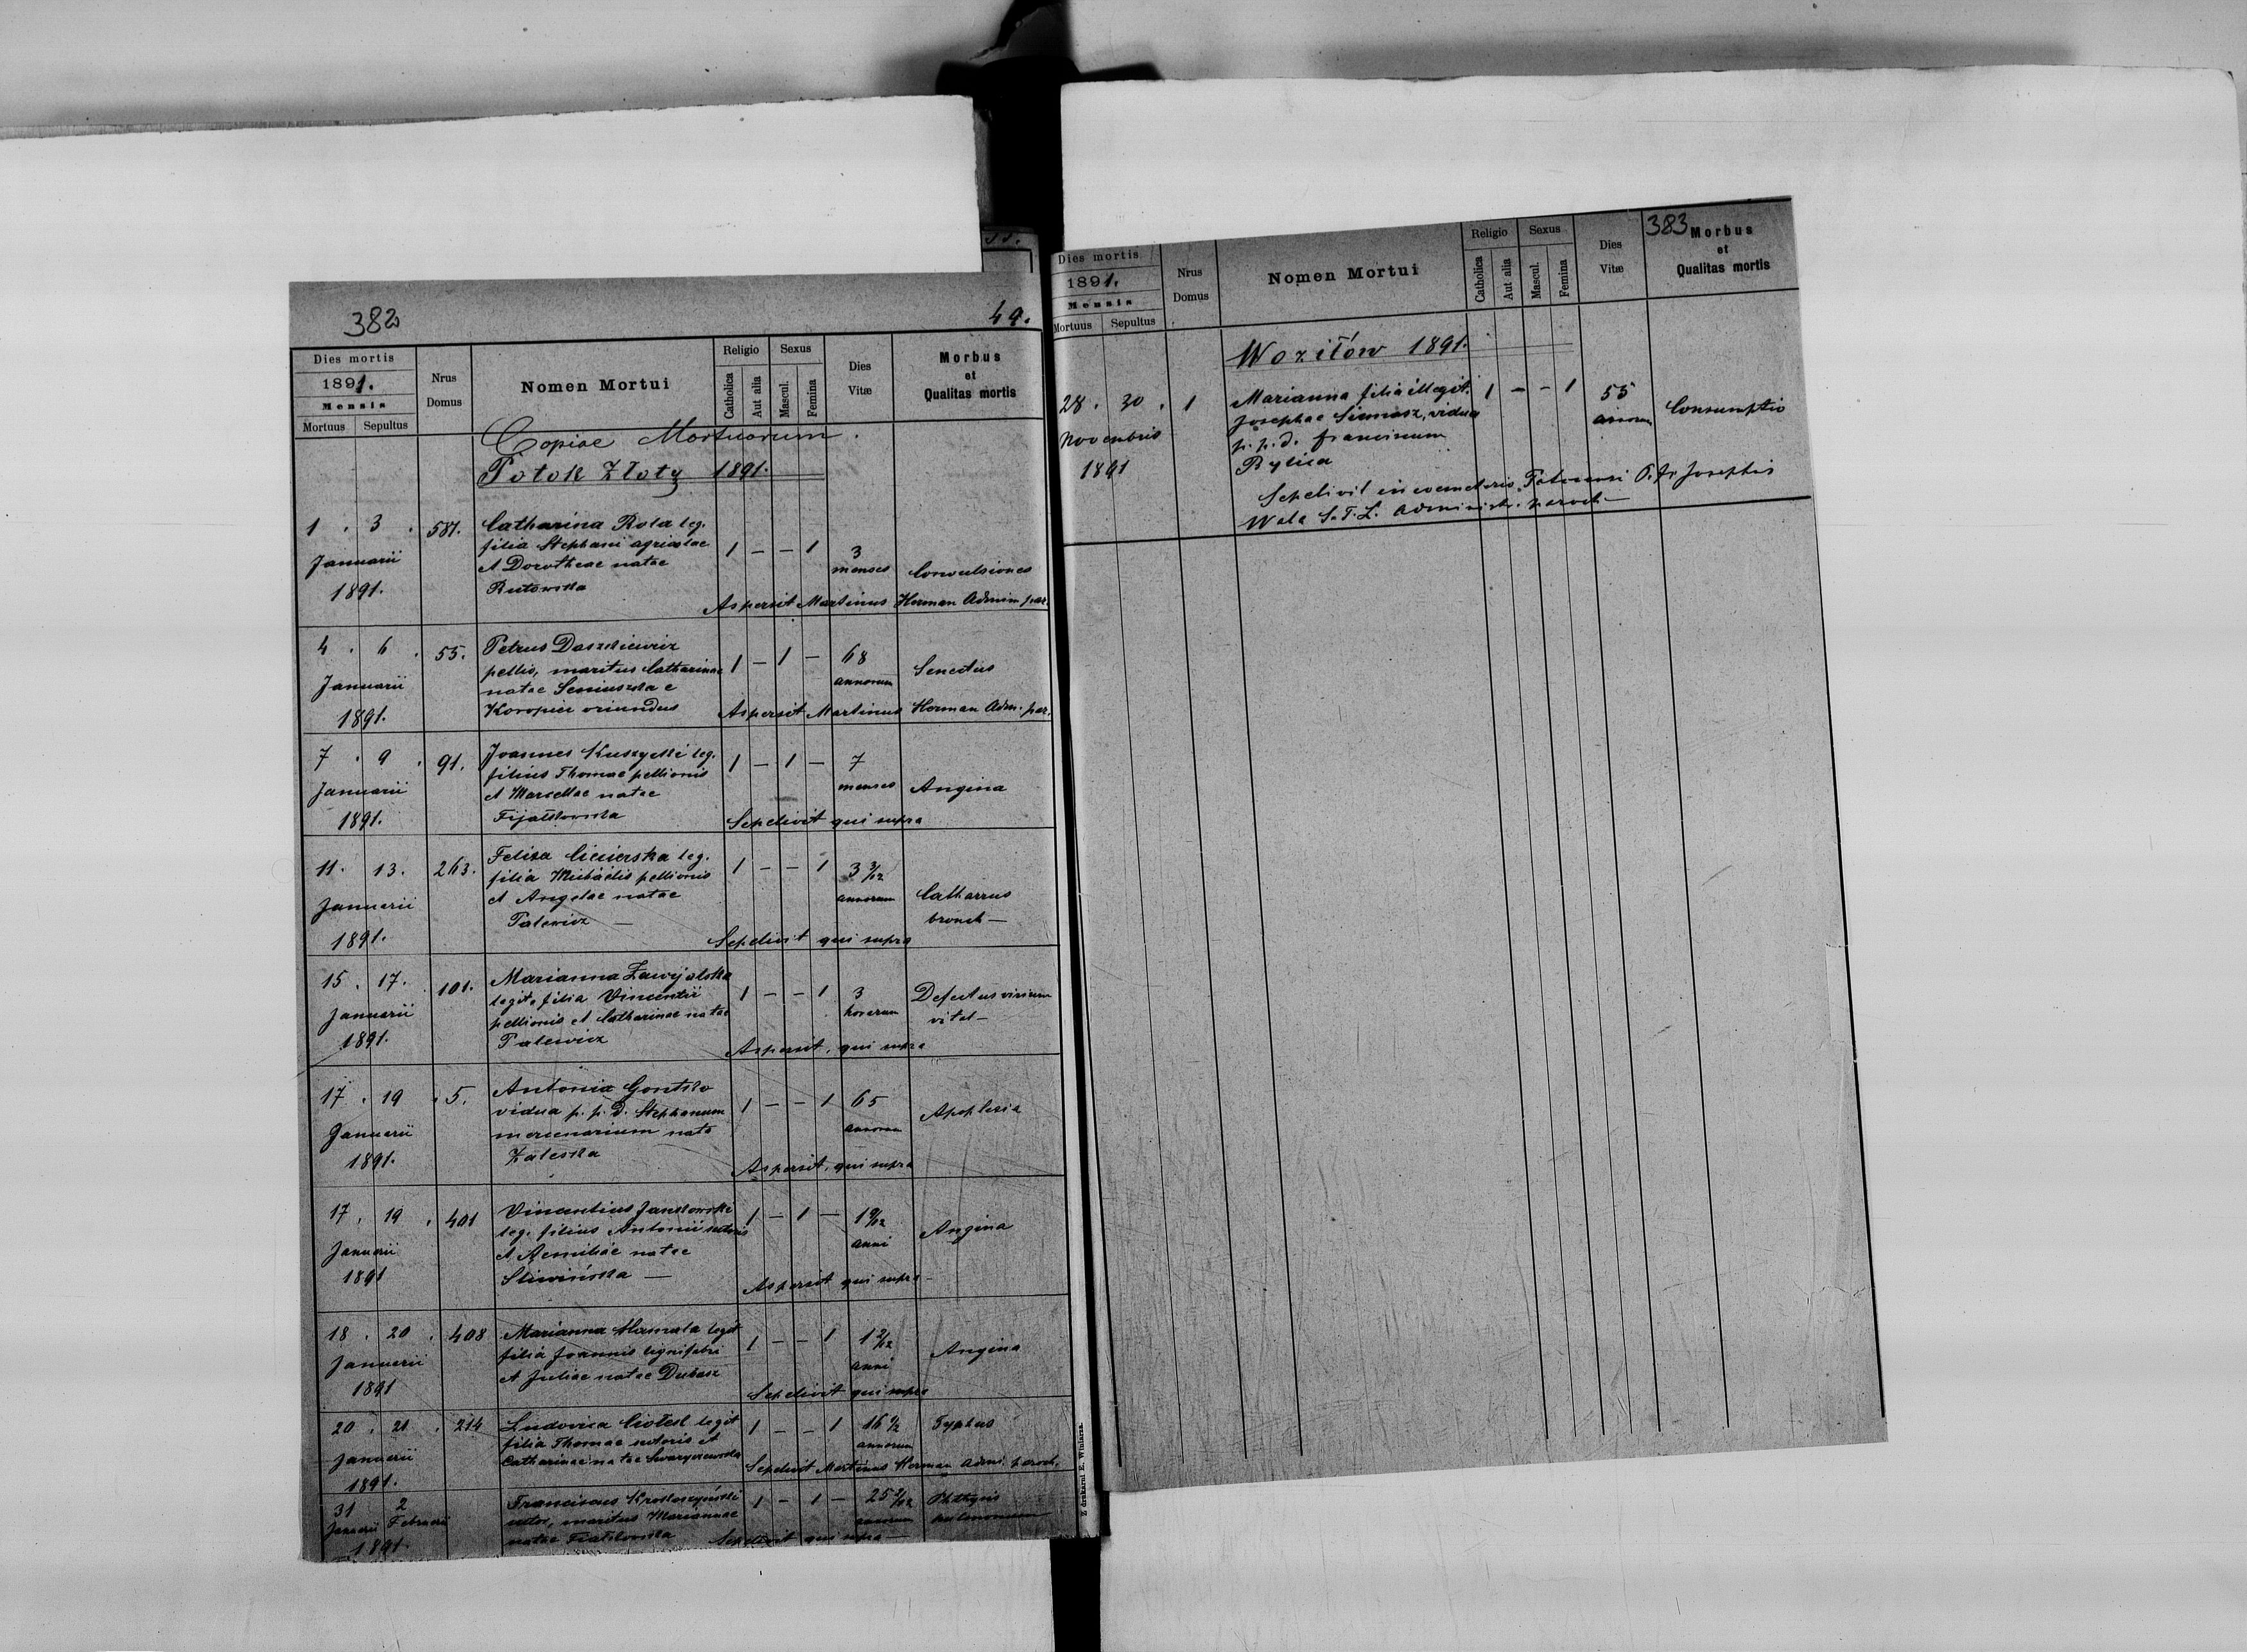 382
49.
Dies mortis
1891.
Mensis
Mortuus Sepultus
Nrus
Domus
Nomen Mortui
Religio
Catholica Aut alia
Sexus
Mascul. Femina
Dies
Vitæ
Morbus
et
Qualitas mortis
Copiae Mortuorum.
Potok Złoty 1891.
1. 3. 581. Catharina Rola leg.
filia Stephani agricolae 1 – – 1 3
Januarii et Dorotheae natae menses Convulsiones
1891. Rutowska
Aspersit Martinus Herman Admin par.
4. 6. 55. Petrus Daszkiewicz
pellio, maritus Catharinae 1 – 1 – 68 Senectus
Januarii natae annorum
1891. Koropiec oriundus Aspersit Martinus Herman Adm. par.
7. 9. 91. Joannes Kuszycki leg. 1 – 1 – 7
filius Thomae pellionis
Januarii et Marcellae natae menses Angina
1891. Fijałkowska Sepelivit qui supra
11. 13. 263. Felixa Ciesierska leg. 1 – – 1 3 3/12
filia Michaelis pellionis
Januarii et Angelae natae annorum Catharrus
Palewicz – bronch –
1891. Sepelivit qui supra
15. 17. 101. Marianna Zawijalska
legit. filia Vincentii 1 – – 1 3 Defectus virium
Januarii pellionis et Catharinae natae horarum vital –
1891. Palewicz Aspersit qui supra
17. 19. 5. Antonia Gontko
vidua p. p. d. Stephanum 1 – – 1 65 Apoplexia
Januarii mercenarium nata annorum
1891. Zaleska Aspersit qui supra
17. 19. 401 Vincentius Jankowski 1 – 1 – 1 9/12
leg. filius Antonii sutoris Angina
Januarii et Aemiliae natae anni
1891 Śliwińska – Aspersit qui supra –
18. 20. 408 Marianna legit 1 – – 1 1 2/12
filia Joannis lignifabri Angina
Januarii et Juliae natae Dubasz anni
1891 Sepelivit qui supra
20. 21. 214 Ludovica Ciołek legit 1 – – 1 16 1/2 Typhus
filia Thomae sutoris et annorum
Januarii Catharinae natae
1891. Sepelivit Martinus Herman Adm. paroch.
31 2 Franciscus Krotoszyński 1 – 1 – 25 2/12 Phthysis
Januarii Februarii sutor, maritus Mariannae annorum pulmonum
1891. natae Fiałkowska Sepelivit qui supra –
Z drukarni E. Winiarza.
383
Dies mortis
1891.
Mensis
Mortuus Sepultus
Nrus
Domus
Nomen Mortui
Religio
Catholica Aut alia
Sexus
Mascul. Femina
Dies
Vitæ
Morbus
et
Qualitas mortis
Woziłów 1891.
28. 30. 1 Marianna filia illegit. 1 – – 1 55
Josephae vidua annorum Consumptio
Novembris p. p. d. Franciscum
1891 Rylica
Sepelivit in coemeterio Potocensi P. Fr. Josephus
Wala S. T. L. Administr. paroch –